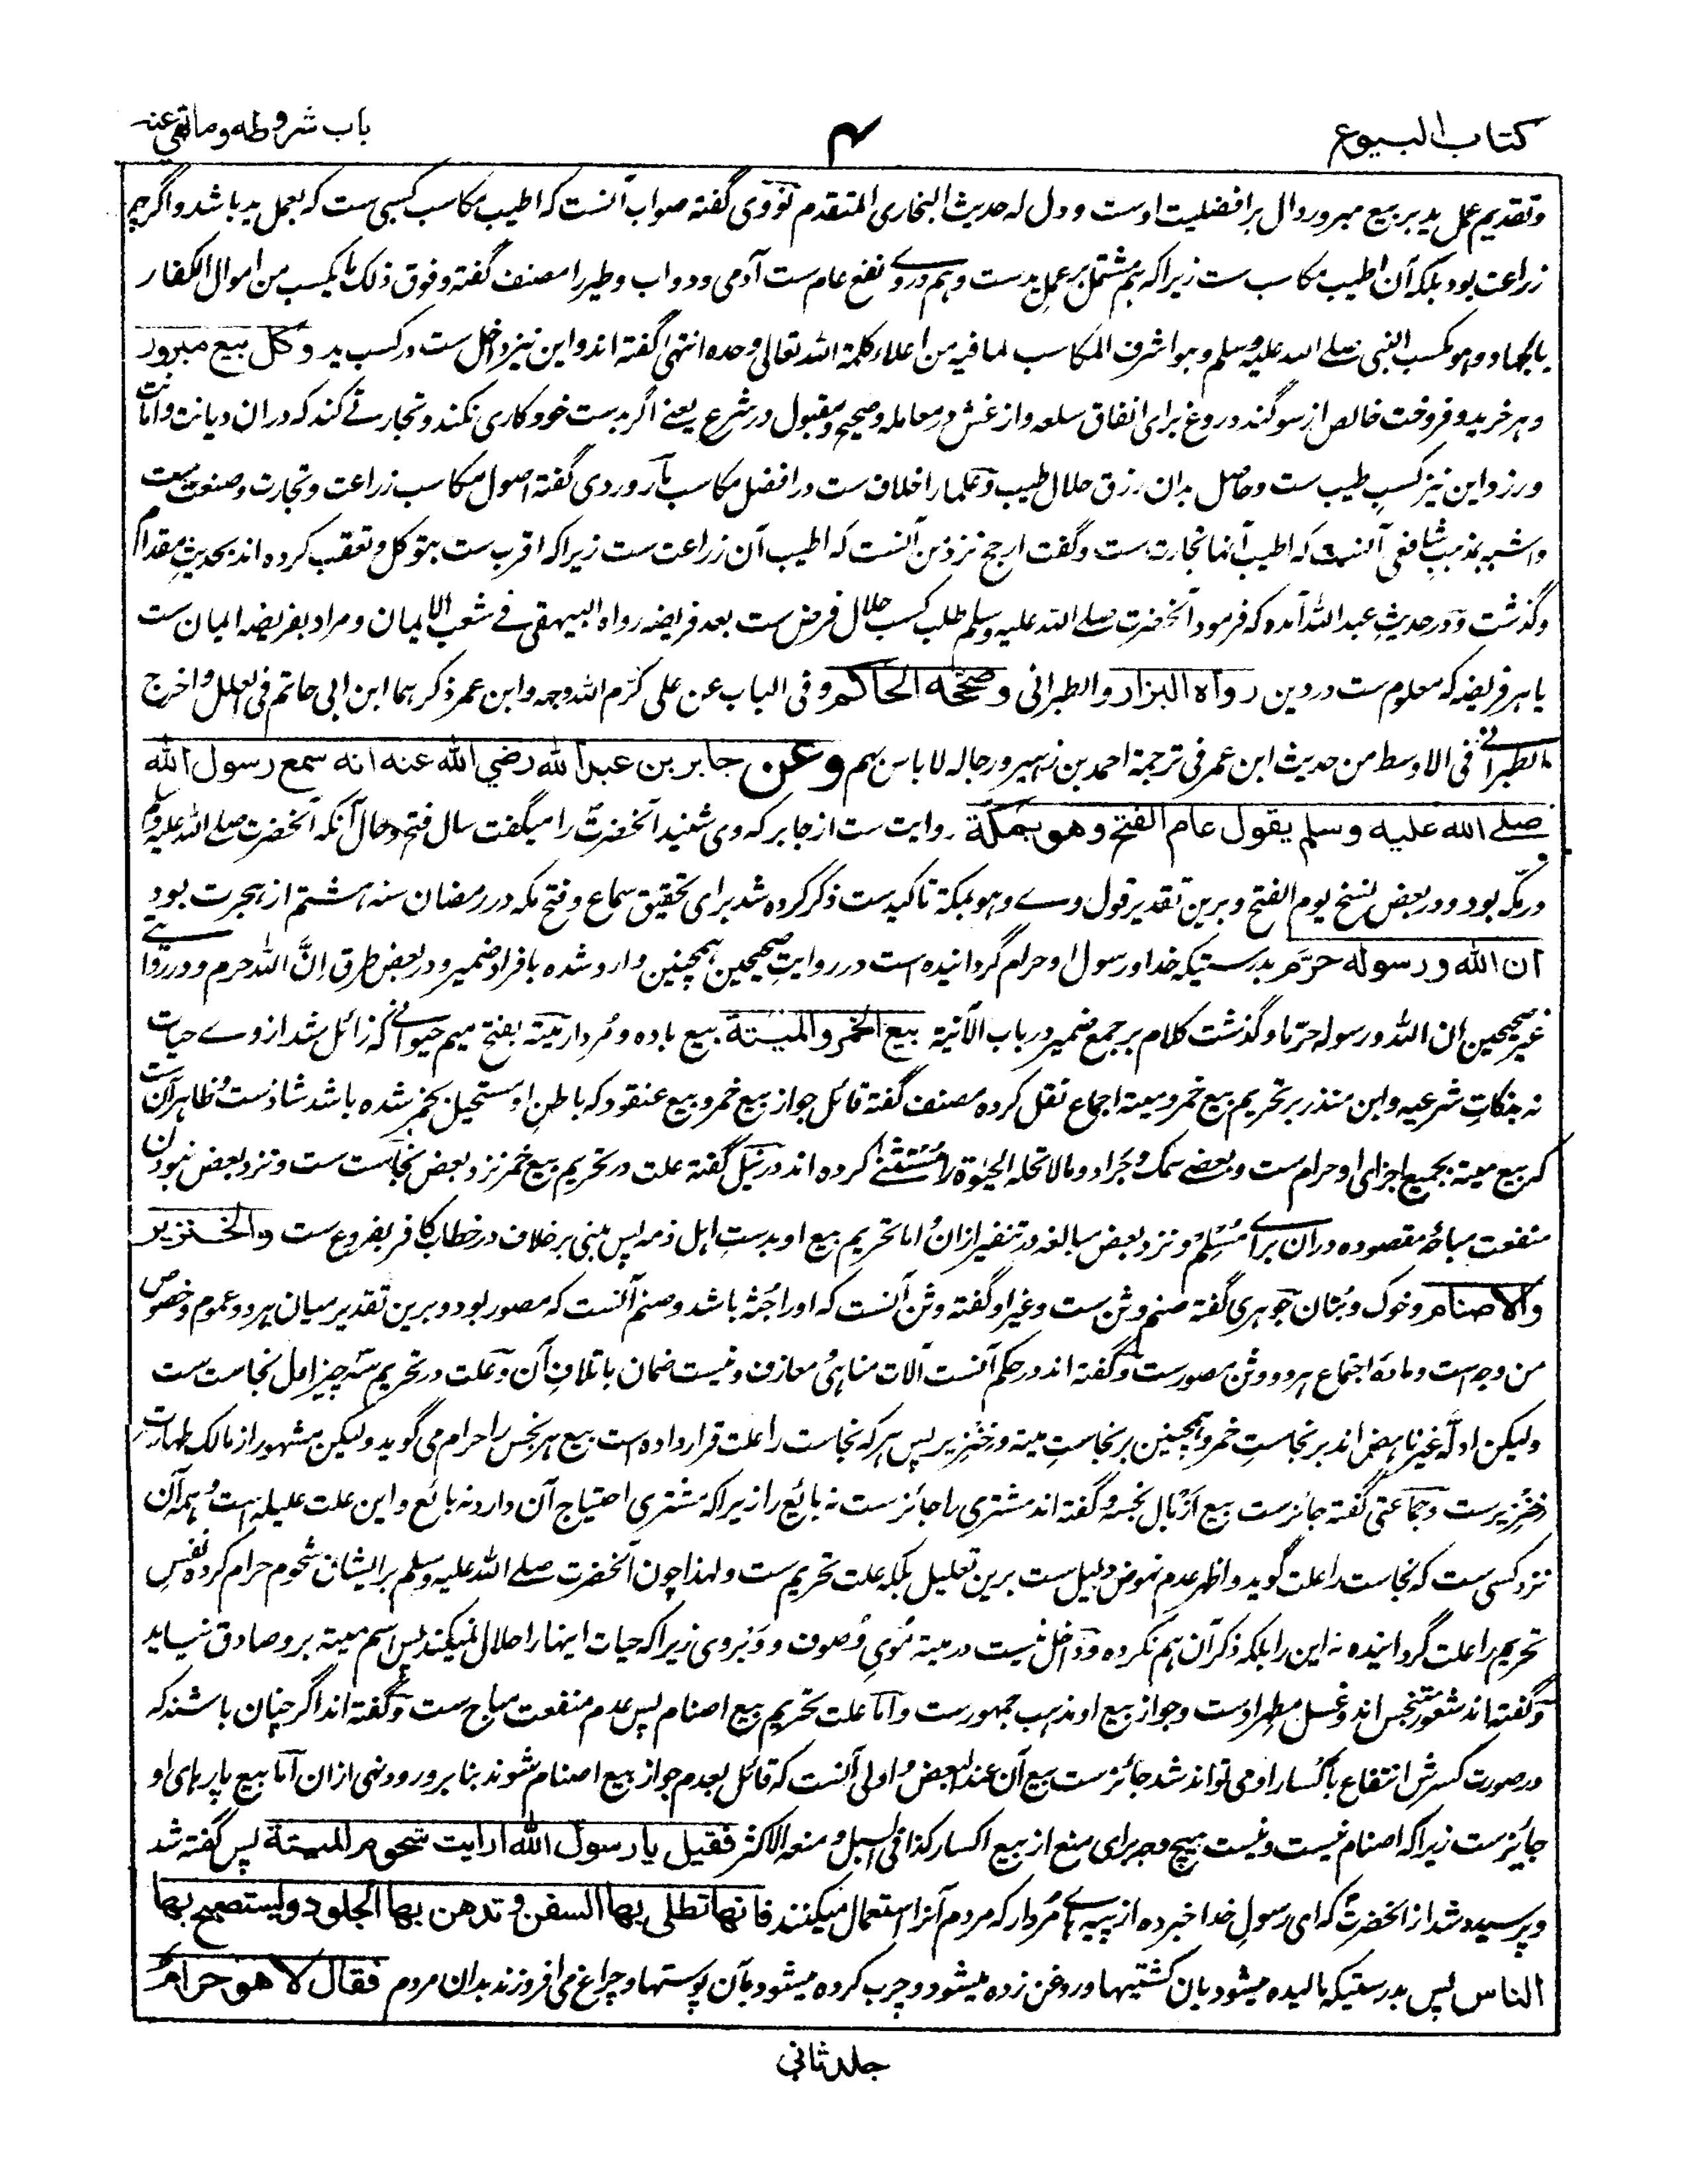 کتاب البیوع
۴
باب شروطه وما نهی عنه
وتقدیم عمل ید بر بیع مبرور دال بر افضلیت اوست و دل له حدیث البخاری المتقدم نووی گفته صواب آنست که اطیب مکاسب کسبی ست که بعمل ید باشد واگرچه
زراعت بود بلکه آن اطیب مکاسب ست زیراکه هم مشتمل بر عمل ید ست وهم دروے نفع عام ست آدمی ودواب وطیر را مصنف گفته وفوق ذلک ما یکسب من اموال الکفار
بالجهاد وهو مکسب النبی صلے الله علیه وسلم وهو اشرف المکاسب لما فیه من اعلاء کلمة الله تعالی وحده انتهی گفته اند واین نیز داخل ست در کسب ید وکل بیع مبرور
وهر خرید وفروخت خالص از سوگند دروغ برای انفاق سلعه واز غش در معامله وصحیح ومقبول در شرع یعنے اگر بدست خود کاری نکند وتجارتے کند که دران دیانت وامانت
ورزد واین نیز کسب طیب ست وحاصل بدان رزق حلال طیب وعلما را خلاف ست در افضل مکاسب ماوردی گفته اصول مکاسب زراعت وتجارت وصنعت ست
واشبه بمذهب شافعی آنست که اطیب آنها تجارت ست وگفت ارجح نزد من آنست که اطیب آن زراعت ست زیراکه اقرب ست بتوکل وتعقب کرده اند بحدیث مقدام
وگذشت ودر حدیث عبد الله آمده که فرمود آنحضرت صلے الله علیه وسلم طلب کسب حلال فرض ست بعد فریضه رواه البیهقی فے شعب الایمان ومراد بفریضه ایمان ست
یا هر فریضه که معلوم ست در دین رواه البزار والطبرانی وصححه الحاکم وفی الباب عن علی کرّم الله وجهه وابن عمر ذکرهما ابن ابی حاتم فی العلل واخرج
الطبرانے فی الاوسط من حدیث ابن عمر فی ترجمة احمد بن زهیر ورجاله لا باس بهم وعن جابر بن عبد الله رضي الله عنه انه سمع رسول الله
صلے الله علیه وسلم یقول عام الفتح وهو بمکة روایت ست از جابر که وی شنید آنحضرت را میگفت سال فتح وحال آنکه آنحضرت صلے الله علیه وسلم
در مکه بود ودر بعض نسخ یوم الفتح وبرین تقدیر قول وے وهو بمکة تاکید ست ذکر کرده شد برای تحقیق سماع وفتح مکه در رمضان سنه هشتم از هجرت بود
ان الله ورسوله حرّم بدرستیکه خدا ورسول او حرام گردانیده است در روایت صحیحین همچنین وارد شده بافراد ضمیر ودر بعض طرق اِنَّ الله حرم ودر روایتے
غیر صحیحین ان الله ورسوله حرّما وگذشت کلام بر جمع ضمیر در باب الآنیة بیع الخمر والمیتة بیع باده ومُردار میته بفتح میم حیوانے که زائل شد ازوے حیات
نه بذکات شرعیه وابن منذر بر تحریم بیع خمر ومیته اجماع نقل کرده مصنف گفته قائل جواز بیع خمر وبیع عنقود که باطن او مستحیل بخمر شده باشد شاذ ست وظاهر آن ست
که بیع میته بجمیع اجزای او حرام ست وبعضے سمک وجراد وما لا تحله الحیوة را مُستثنٰے کرده اند در نیل گفته علت در تحریم بیع خمر نزد بعض نجاست ست ونزد بعض نبودن
منفعت مباحهٔ مقصوده دران براے مُسلم ونزد بعض مبالغه در تنفیر ازان اما تحریم بیع او بدست اهل ذمه پس مبنی بر خلاف در خطاب کافر بفروع ست والخنزیر
والاصنام وخوک وبُتان جوهری گفته صنم وثن ست وغیر او گفته وثن آنست که او را جُثه باشد وصنم آنست که مصور بود وبرین تقدیر میان هر دو عموم وخصوص
من وجه ست ومادهٔ اجتماع هر دو وثن مصور ست وگفته اند در حکم آنست آلات مناهی ومعازف ونیست ضمان باتلاف آن وعلت در تحریم سه چیز اول نجاست ست
ولیکن ادلّه غیر ناهض اند بر نجاست خمر وهمچنین بر نجاست میته وخنزیر پس هر که نجاست را علت قرار داده است بیع هر نجس را حرام می گوید ولیکن مشهور از مالک طهارت
خنزیر ست وجماعتی گفته جائز ست بیع ازبال نجسه وگفته اند مشتری را جائز ست نه بائع را زیراکه مشتری احتیاج آن دارد نه بائع واین علت علیله است وهمه آن
نزد کسی ست که نجاست را علت گوید واظهر عدم نهوض دلیل ست برین تعلیل بلکه علت تحریم ست ولهذا چون آنحضرت صلے الله علیه وسلم بر ایشان شحوم حرام کرده نفس
تحریم را علت گردانیده نه این را بلکه ذکر آن هم نکرده وداخل نیست در میته مُوی وصوف ووَبر وی زیراکه حیات اینها را حلال نمیکند پس اسم میته برو صادق نیاید
وگفته اند شعور متنجس اند وغسل مطهر اوست وجواز بیع او مذهب جمهور ست واما علت تحریم بیع اصنام پس عدم منفعت مباح ست وگفته اند اگر چنان باشند که
در صورت کسرش انتفاع باکسار او می تواند شد جائز ست بیع آن عند البعض واولی آنست که قائل بعدم جواز بیع اصنام شوند بنا بر ورود نهی ازان اما بیع پارهای او
جایز ست زیراکه اصنام نیست ونیست هیچ وجه برای منع از بیع اکسار کذا فی السبل ومنعه الاکثر فقیل یا رسول الله ارایت شحوم المیتة پس گفته شد
وپرسیده شد از آنحضرت که ای رسول خدا خبر ده از پیه هاے مُردار که مردم آنرا استعمال میکنند فانها تطلی بها السفن وتدهن بها الجلود ولیستصبح بها
الناس پس بدرستیکه مالیده میشود بان کشتیها وروغن زده میشود وچرب کرده میشود بآن پوستها وچراغ می افروزند بدان مردم فقال لا هو حرام
جلد ثانی